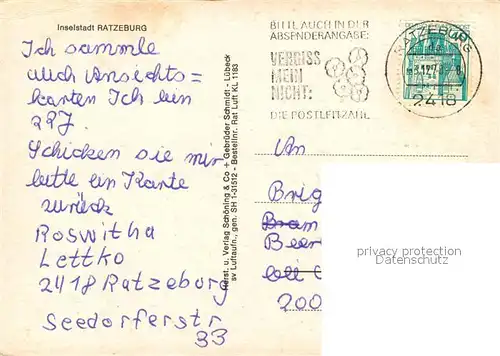 Inselstadt RATZEBURG
Ich sammle
auch Ansichts=
karten Ich bin
22J.
Schicken sie mir
bitte ein Karte
zurück
Roswitha
Lettko
2418 Ratzeburg
Seedorferstr
33
Herst. u. Verlag Schöning & Co + Gebrüder Schmidt - Lübeck
sv Luftaufn., gen. SH 1-31512 - Bestellnr. Rat Luft KL 1183
BITTE AUCH IN DER
ABSENDERANGABE:
VERGISS
MEIN
NICHT:
DIE POSTLEITZAHL
RATZEBURG
2418
An
Brig
Bram
Beer
200
privacy protection
Datenschutz